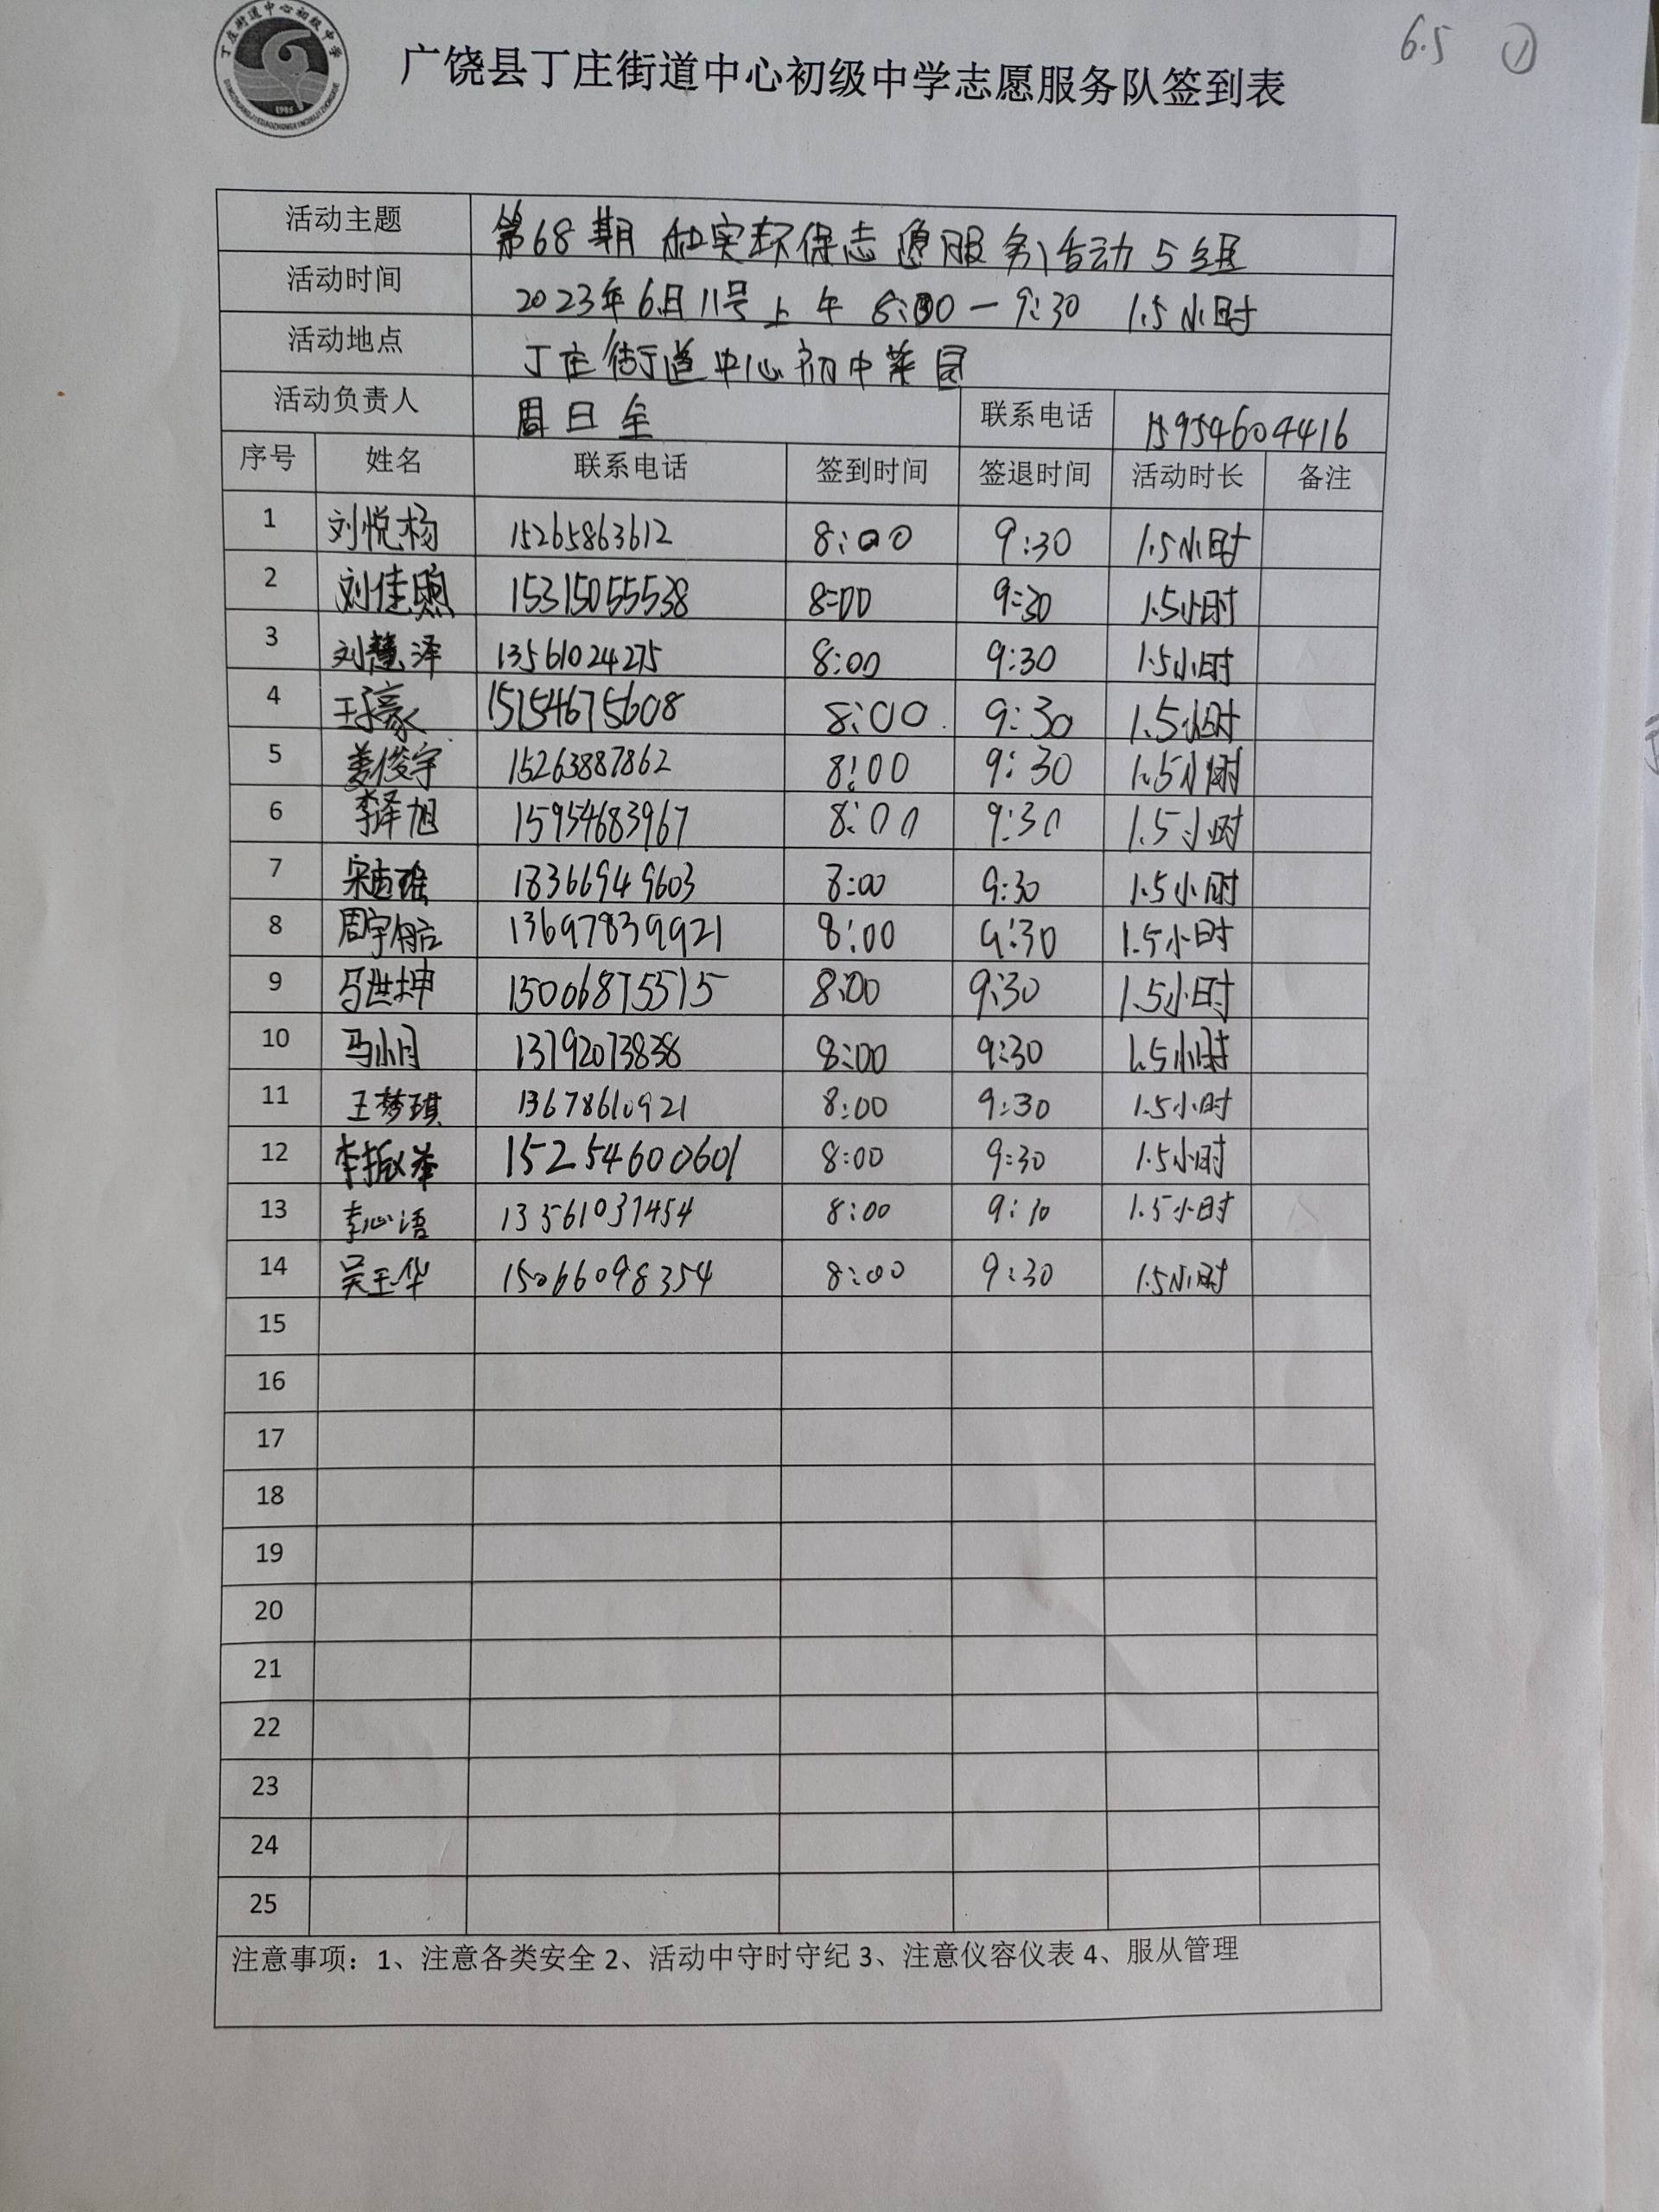 丁庄街道中心初级中学
1986
6.5 ①
广饶县丁庄街道中心初级中学志愿服务队签到表
活动主题 第68期 和实环保志愿服务活动5组
活动时间 2023年6月11号上午 8:00—9:30 1.5小时
活动地点 丁庄街道中心初中菜园
活动负责人 周日全 联系电话 15954604416
序号 姓名 联系电话 签到时间 签退时间 活动时长 备注
1 刘悦杨 15265863612 8:00 9:30 1.5小时
2 刘佳煦 15315055538 8:00 9:30 1.5小时
3 刘慧泽 13561024275 8:00 9:30 1.5小时
4 王子豪 15154675608 8:00 9:30 1.5小时
5 姜俊宇 15263887862 8:00 9:30 1.5小时
6 李泽旭 15954683967 8:00 9:30 1.5小时
7 18366949603 8:00 9:30 1.5小时
8 周宇航 13697839921 8:00 9:30 1.5小时
9 马世坤 15006875515 8:00 9:30 1.5小时
10 马小月 13792073838 8:00 9:30 1.5小时
11 王梦琪 13678610921 8:00 9:30 1.5小时
12 15254600601 8:00 9:30 1.5小时
13 李心语 13561037454 8:00 9:30 1.5小时
14 吴玉华 15066098354 8:00 9:30 1.5小时
15
16
17
18
19
20
21
22
23
24
25
注意事项：1、注意各类安全 2、活动中守时守纪 3、注意仪容仪表 4、服从管理